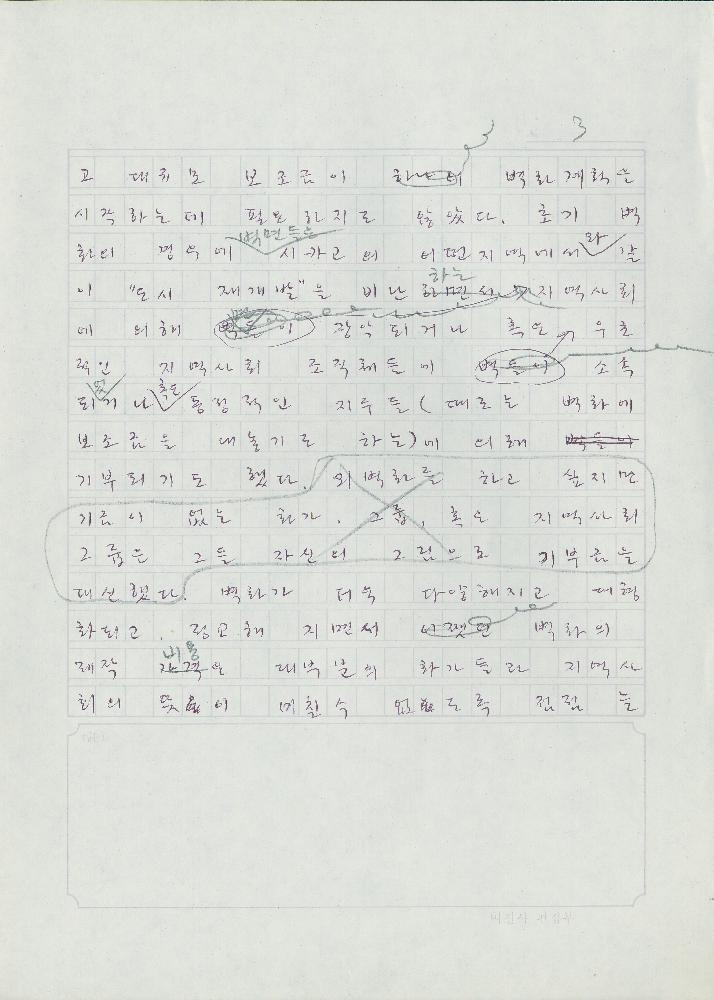 3
고 대규모 보조금이 하나의 벽화계획을
시작하는데 필요하지도 않았다. 초기 벽
벽면들은 와
화의 경우에 시카고의 어떤지역에서 같
하는
이 "도시 재개발"을 비난 하면서 지역사회
에 의해 벽들이 장악되거나 혹은 우호
적인 지역사회 조직체들에 벽들이 소속
혹은
되거나 동정적인 지주들(때로는 벽화에
보조금을 내놓기도 하는)에 의해 벽들이
기부되기도 했다. 외벽화를 하고 싶지만
기금이 없는 화가, 그룹, 혹은 지역사회
그룹은 그들 자신의 그림으로 기부금을
대신했다. 벽화가 더욱 다양해지고 대형
화되고, 정교해 지면서 어쨌든 벽화의
비용
제작 가격은 대부분의 화가들과 지역사
회의 뜻이 미칠수 없도록 점점 늘